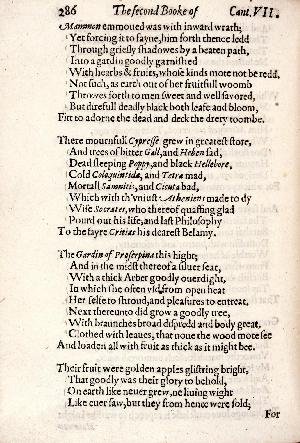 286 The second Booke of Cant. VII.
Mammon emmoued was with inward wrath;
Yet forcing it to fayne, him forth thence ledd
Through griesly shadowes by a beaten path,
Into a gardin goodly garnished
With hearbs & fruits, whose kinds mote not be redd.
Not such, as earth out of her fruitfull woomb
Throwes forth to men sweet and well sauored,
But direfull deadly black both leafe and bloom,
Fitt to adorne the dead and deck the drery toombe.
There mournfull Cypresse grew in greatest store,
And trees of bitter Gall, and Heben sad,
Dead sleeping Poppy, and black Hellebore,
Cold Coloquintida, and Tetra mad,
Mortall Samnitis, and Cicuta bad,
Which with th'vniust Atheniens made to dy
Wise Socrates, who thereof quaffing glad
Pourd out his life, and last Philosophy
To the fayre Critias his dearest Belamy.
The Gardin of Proserpina this hight;
And in the midst thereof a siluer seat,
With a thick Arber goodly ouerdight,
In which she often vsd from open heat
Her selfe to shroud, and pleasures to entreat.
Next thereunto did grow a goodly tree,
With braunches broad dispredd and body great,
Clothed with leaues, that none the wood mote see
And loaden all with fruit as thick as it might bee.
Their fruit were golden apples glistring bright,
That goodly was their glory to behold,
On earth like neuer grew, ne liuing wight
Like euer saw, but they from hence were sold;
For